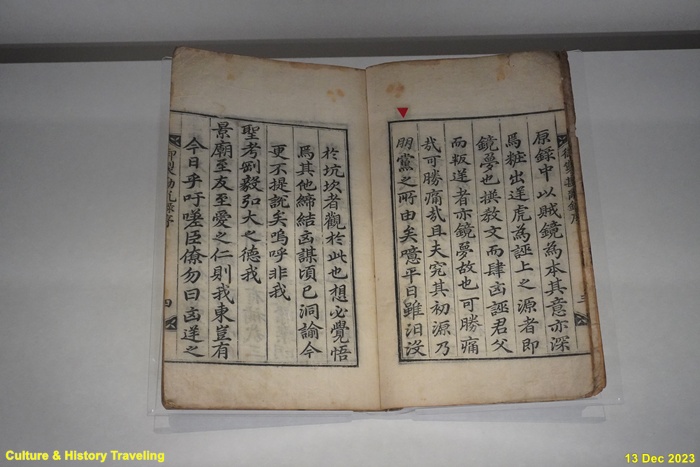 原錄中以賊鏡為本其意亦深
爲粧出逆虎為誣上之源者即
鏡夢也撰敎文而肆凶誣君父
而叛逆者亦鏡夢故也可勝痛
哉可勝痛哉且夫究其初源乃
朋黨之所由矣噫平日雖汨沒
三
於坑坎者觀於此也想必覺悟
爲其他締結凶謀頃已洞諭今
更不提說矣嗚呼非我
聖考剛毅弘大之德我
景廟至友至愛之仁則我東豈有
今日乎吁嗟臣僚勿曰凶逆之
御製勘亂錄序
四
Culture & History Traveling
13 Dec 2023